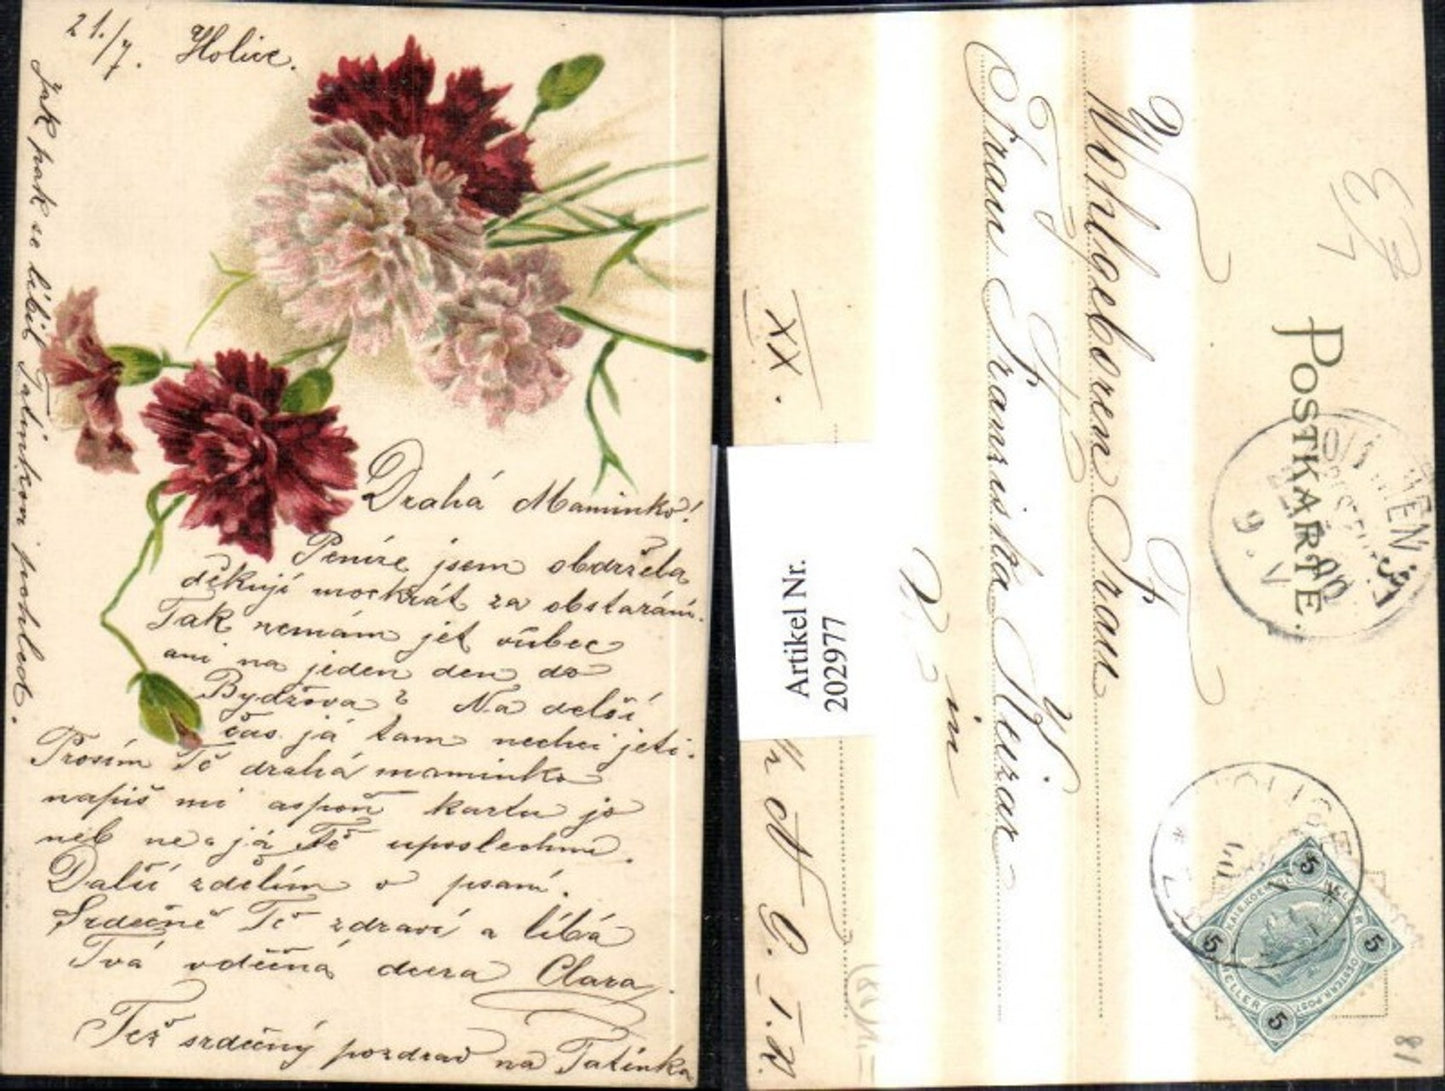 21./7. Holice.
Jak pak se líbil Tatínkovi pohled.
Drahá Maminko!
Peníze jsem obdržela
děkuji mockrát za obstarání.
Tak nemám jet vůbec
ani na jeden den do
Bydžova? Na delší
čas já tam nechci jeti.
Prosím Tě drahá maminko
napiš mi aspoň kartu jo
neb ne a já Tě uposlechnu.
Další zdělím v psaní.
Srdečně Tě zdraví a líbá
Tvá vděčná dcera Clara.
Též srdečný pozdrav na Tatínka
POSTKARTE.
Wohlgeboren Frau
Frau Franziska
in
XX.
Artikel Nr.
202977
WIEN
9. V
HOLITZ
5
5
5
5
HELLER
HELLER
81